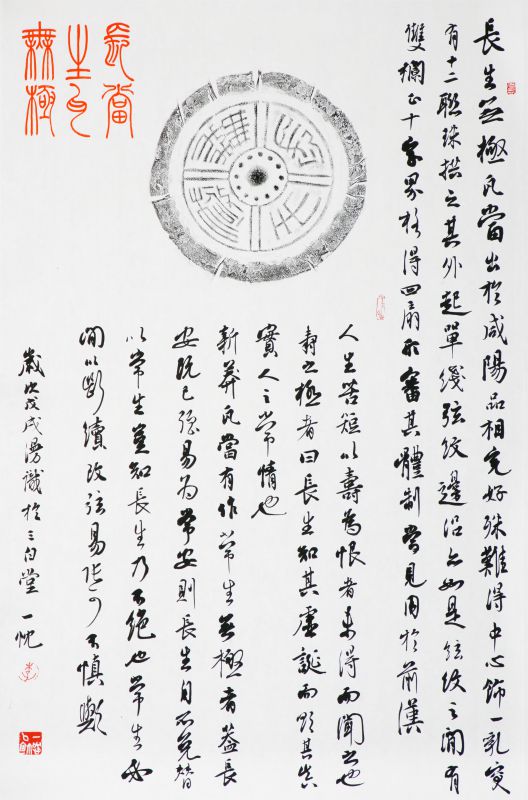 長生
無極
瓦當
長生無極瓦當出於咸陽品相完好殊難得中心飾一乳突
有十二聯珠拱之其外起單綫弦紋邊沿亦如是弦紋之間有
雙欄十字界格得四扇審其體制嘗見用於前漢
人生苦短以壽為恨者未得而聞之也
壽之極者曰長生知其虛誕而其真
實人之常情也
新莽瓦當有作常生無極者蓋長
安既已強易為常安則長生自不免替
以常生豈知長生乃不絕也常生必
間以斷續改弦易張可不慎歟
歲次戊戌漫識於三白堂 一忱